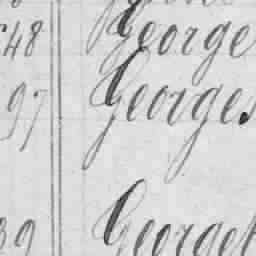 48 George
97 Georges
39 Georget